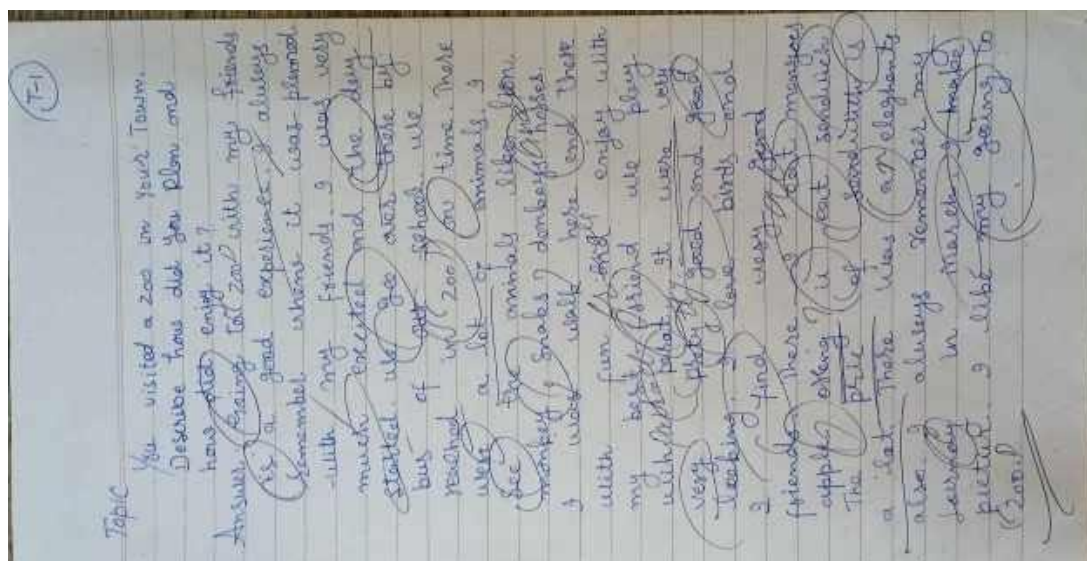 T-1
Topic
You visited a zoo in your Town.
Describe how did you plan and
how did enjoy it?
Answer: Going to zoo with my friends
is a good experience. I alueys
remember whene it was planned
with my friends. I was very
much excited and the day
started. we go over there by
bus of school. we
reached in zoo on time. There
were a lot of animals. I
see the animals like lion,
monkey, snakes, donkey, horses.
I was walk here end there
with fun and enjoy with
my best friend we play
with parot. It were very
very prity good and good
looking. I love birds and
I find very good
friends. There I eat mangoes
apple, oring, I eat sanduich
The prie of sanduitch is
a lot. There was an elephents
also I alueys remember my
jaerney in
pictur. I like my going to
zoo.